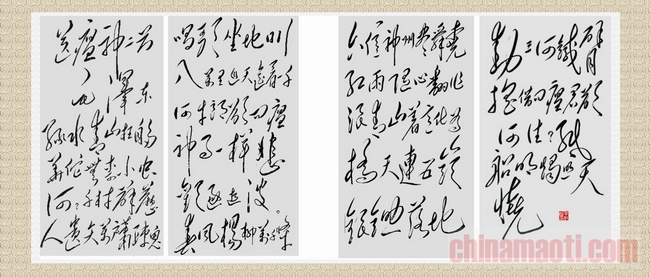 送瘟神二首
毛泽东
绿水青山枉自多
华佗无奈小虫
何千村薜荔
人遗矢万户萧疏鬼
唱歌坐地日行
八万里巡天遥看一千
河牛郎欲问瘟
神事一样悲
欢逐逝波
春风杨柳万千条
六亿神州尽舜尧
红雨随心翻作
浪青山着意化为
桥天连五岭
银锄落地
动三河铁臂
摇借问瘟君欲
何往纸
船明烛照天
烧
chinamaoti.com